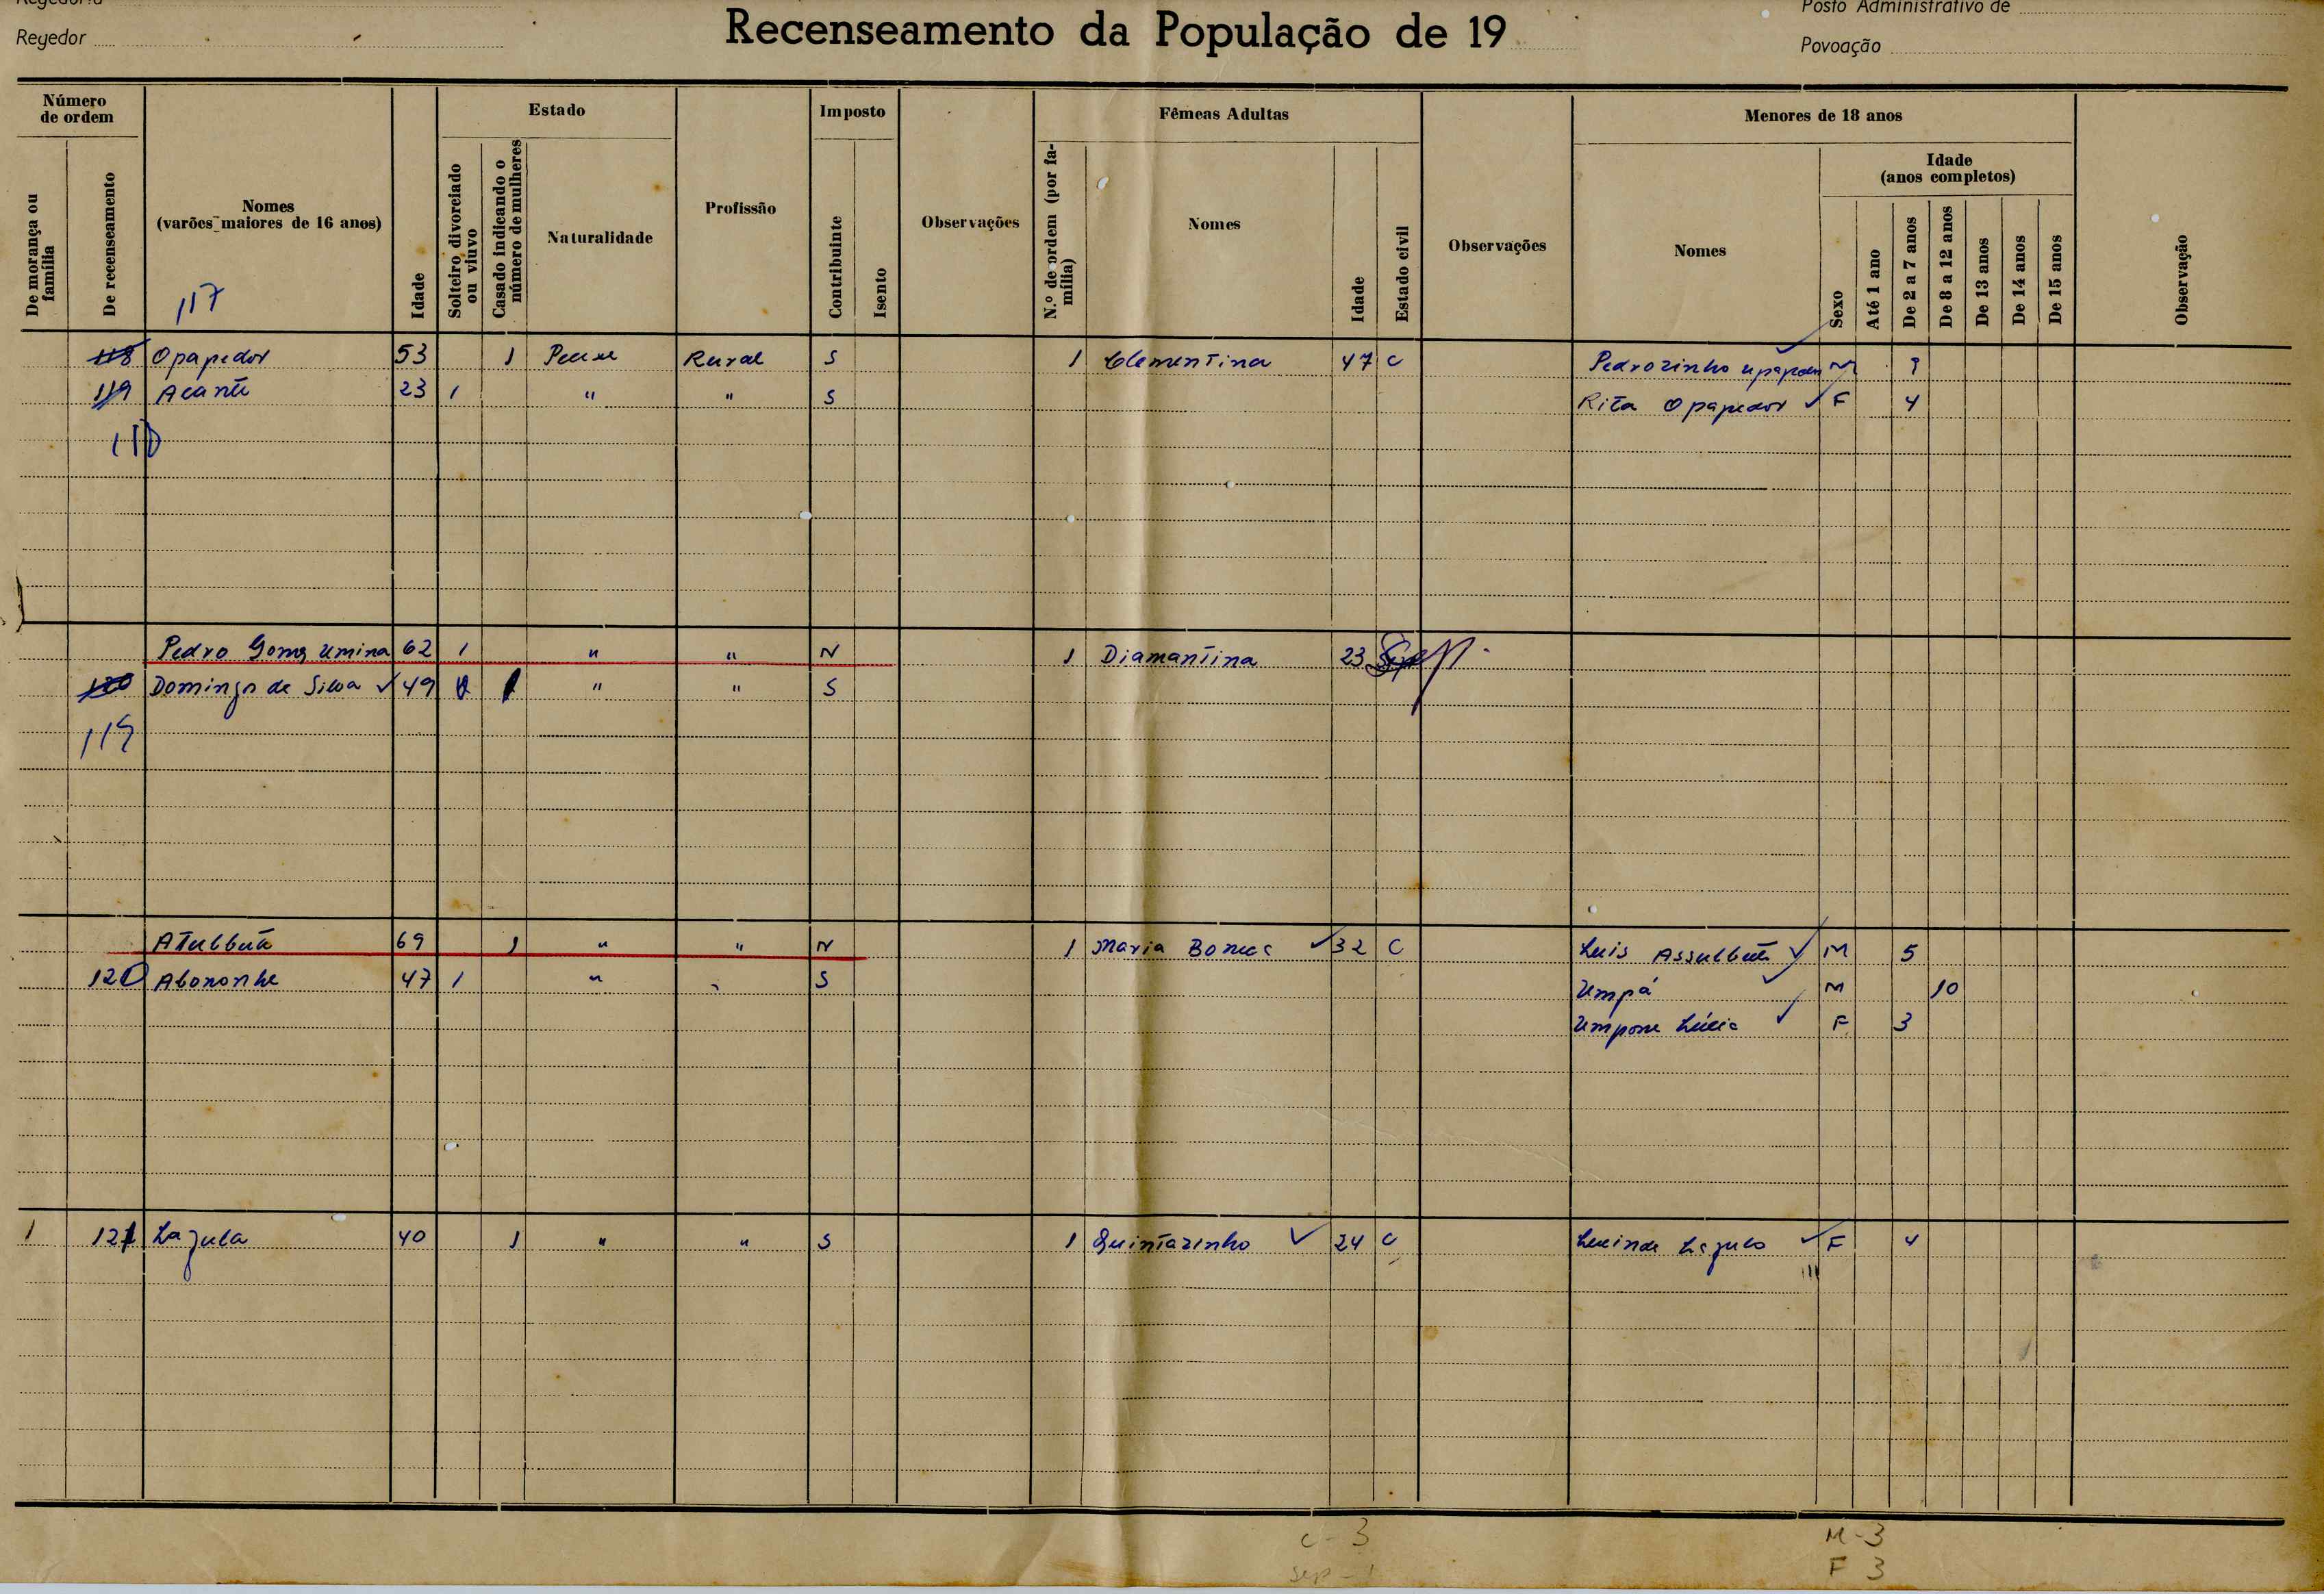 Regedoria
Regedor
Recenseamento da População de 19
Posto Administrativo de
Povoação
Número de ordem
De morança ou família
De recenseamento
Nomes (varões maiores de 16 anos)
117
Idade
Estado
Solteiro divorciado ou viuvo
Casado indicando o número de mulheres
Naturalidade
Profissão
Imposto
Contribuinte
Isento
Observações
Fêmeas Adultas
N.º de ordem (por família)
Nomes
Idade
Estado civil
Observações
Menores de 18 anos
Nomes
Idade (anos completos)
Sexo
Até 1 ano
De 2 a 7 anos
De 8 a 12 anos
De 13 anos
De 14 anos
De 15 anos
Observação
118 Opapedor 53 1 Rural S 1 Clementina 47 C Pedrozinho M
119 23 1 " " S Rita Opapedor F 4
118
Pedro Gomes Umina 62 1 " " N 1 Diamantina 23
120 Domingos de Silva 49 " " S
119
69 1 " " N 1 Maria 32 C Luis M 5
120 Abononhe 47 1 " " S Umpá M 10
Umpone F 3
1 121 Lazula 40 1 " " S 1 Quintazinho 24 C F 4
C - 3
Sep - 1
M - 3
F 3